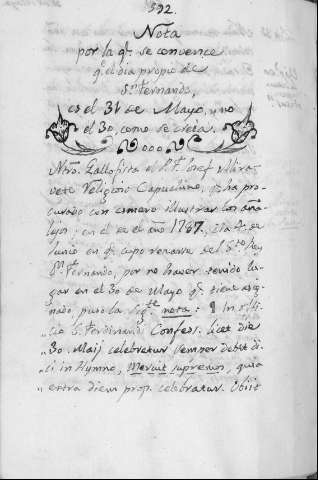 592.
Nota
por la q.e se convence
q.e el dia propio de
S.n Fernando,
es el 31 de Mayo, y no
el 30, como se creia.
Ntro. Gallofista el P. F. Josef
Religioso Capuchino, q.e ha pro-
curado con esmero illustrar los aña-
lejos; en el de el año 1787, dia 4 de
Junio en q.e cupo rezarse del S.to Rey
S.n Fernando, por no haver tenido lu-
gar en el 30 de Mayo q.e tiene asig-
nado, puso la sig.te nota: In
cio S. Ferdinandi Confess. licet die
„30. Maij celebretur semper debet di-
„ci in Hymno, Meruit supremos, quia
„extra diem prop. celebratur. Obiit